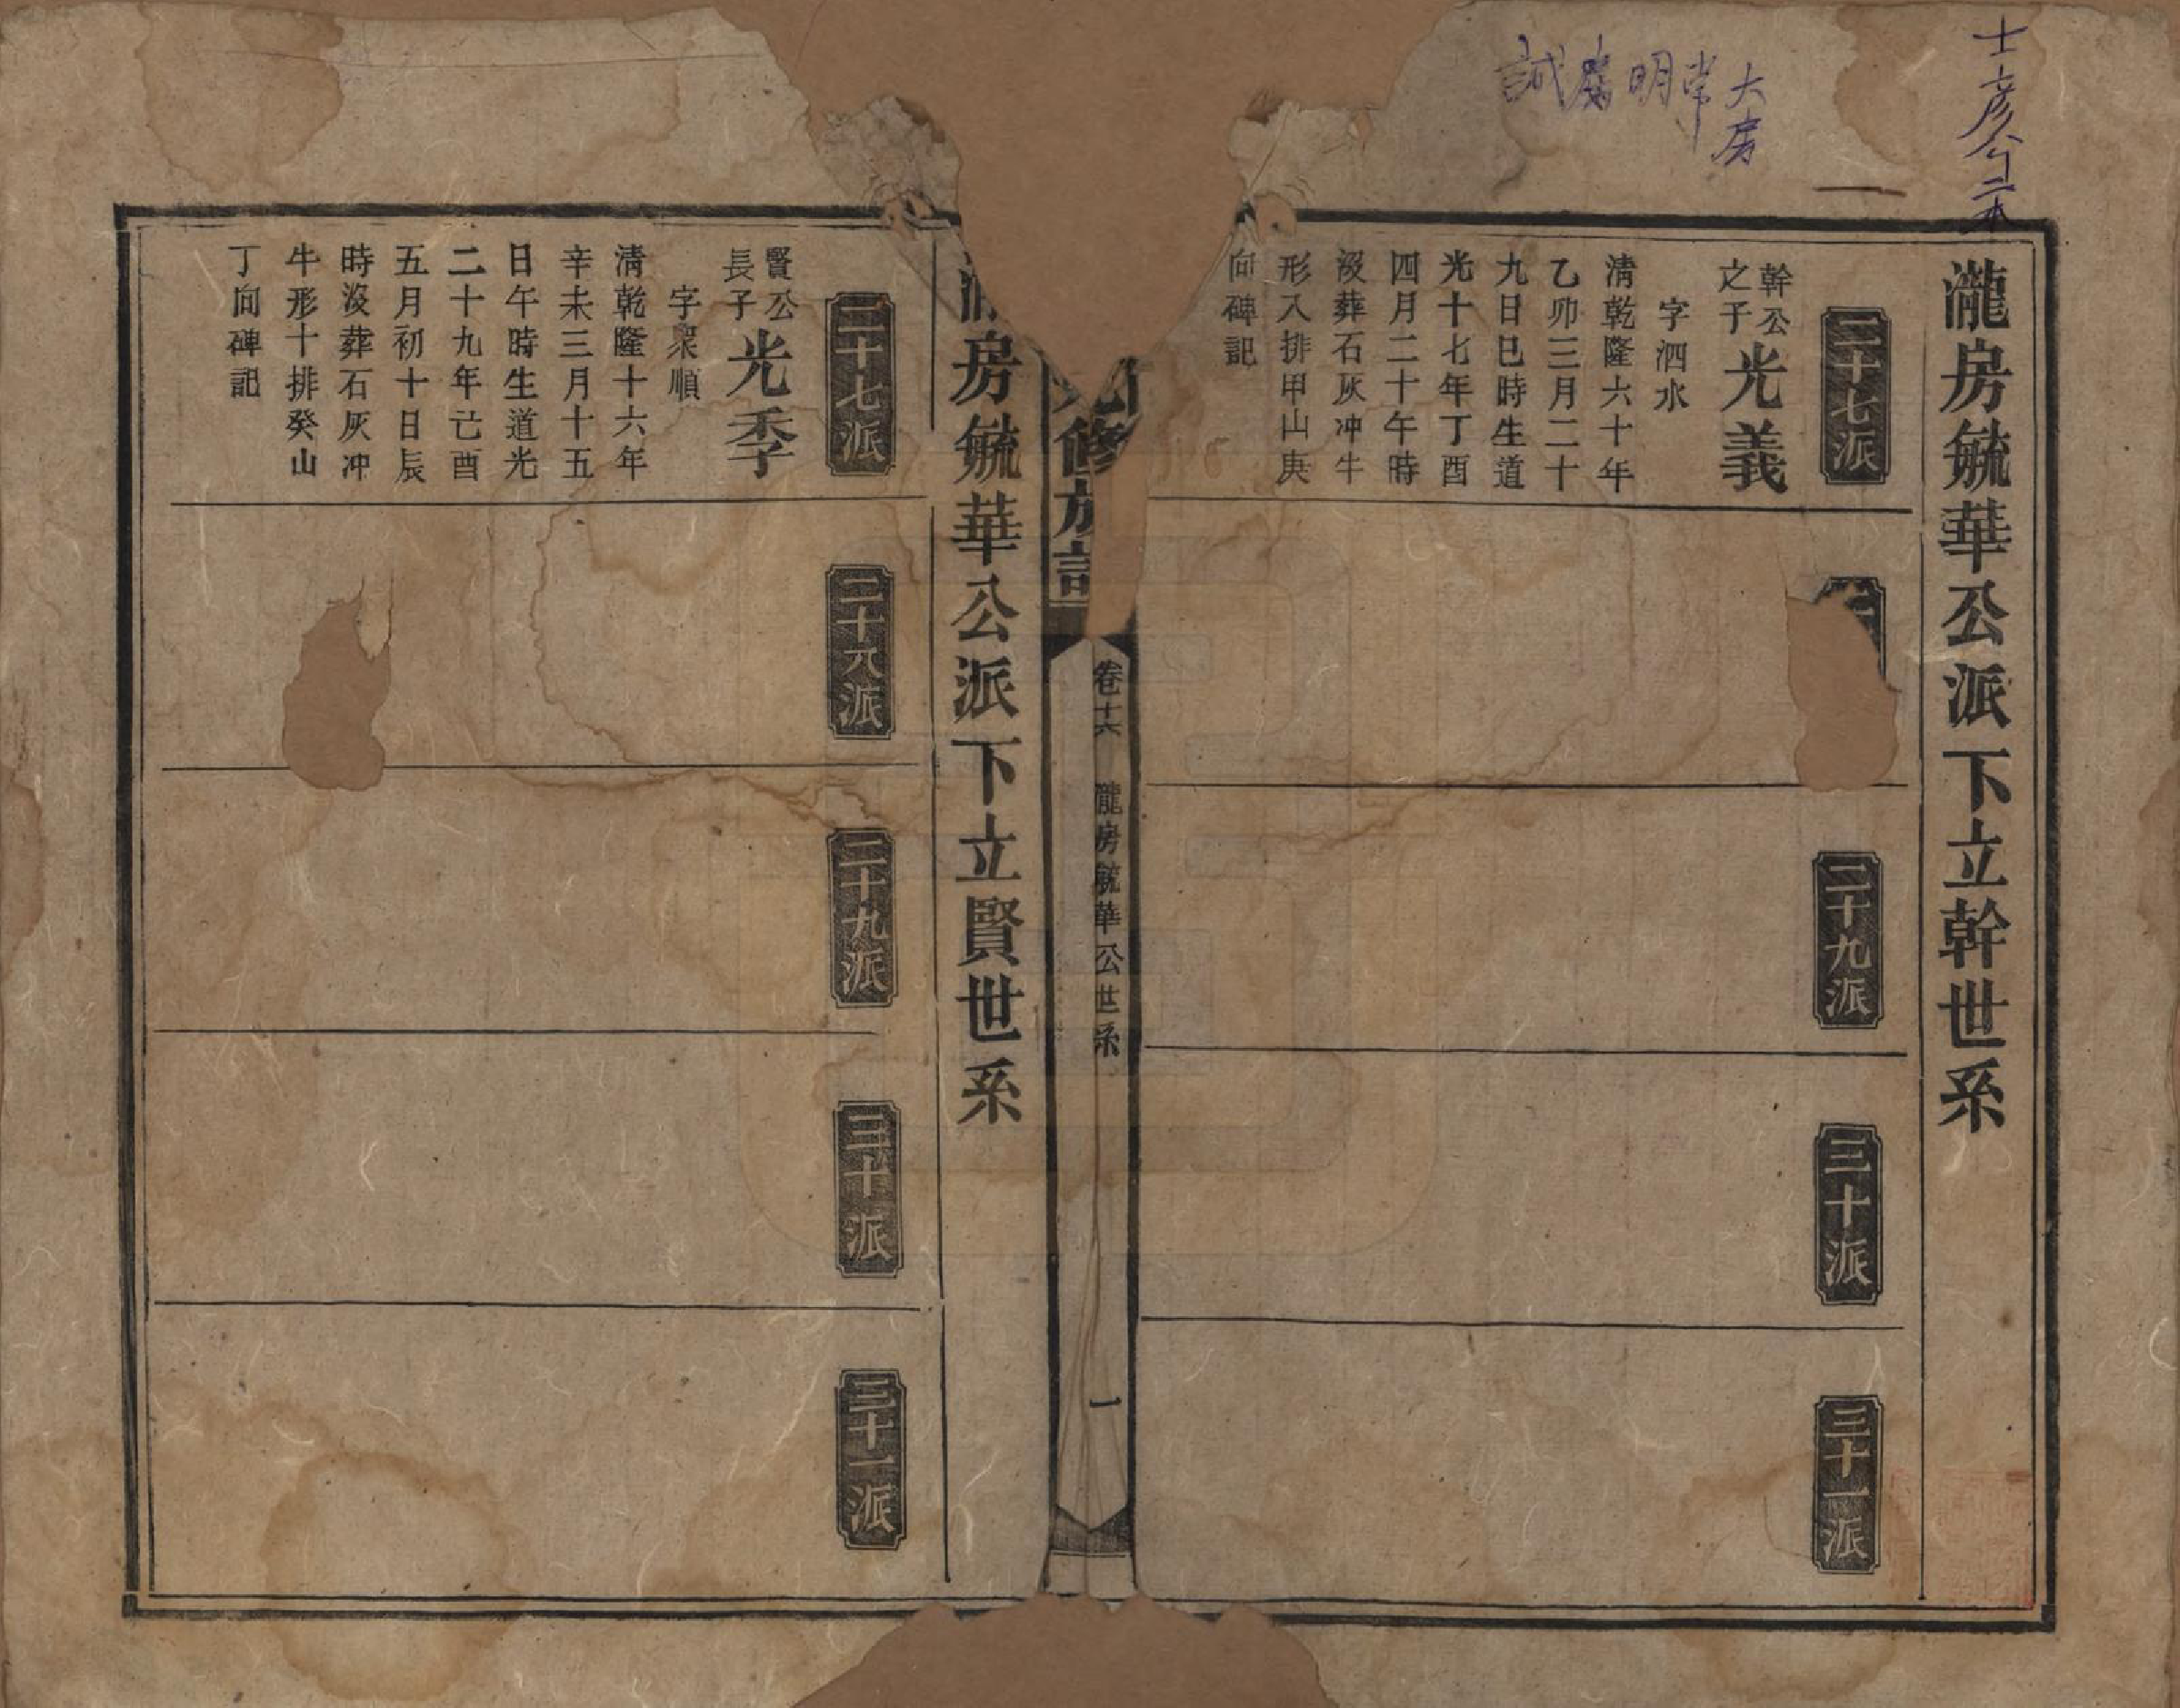 士彥公二本
大房
常明慶誠
瀧房毓華公派下立幹世系
二十七派
幹公
之子
光義
字泗水
淸乾隆六十年
乙卯三月二十
九日巳時生道
光十七年丁酉
四月二十午時
歿葬石灰冲牛
形入排甲山庚
向碑記
二十九派
三十派
三十一派
修族譜
卷十六
瀧房毓華公世系
一
房毓華公派下立賢世系
二十七派
賢公
長子
光季
字眾順
淸乾隆十六年
辛未三月十五
日午時生道光
二十九年己酉
五月初十日辰
時歿葬石灰冲
牛形十排癸山
丁向碑記
二十八派
二十九派
三十派
三十一派